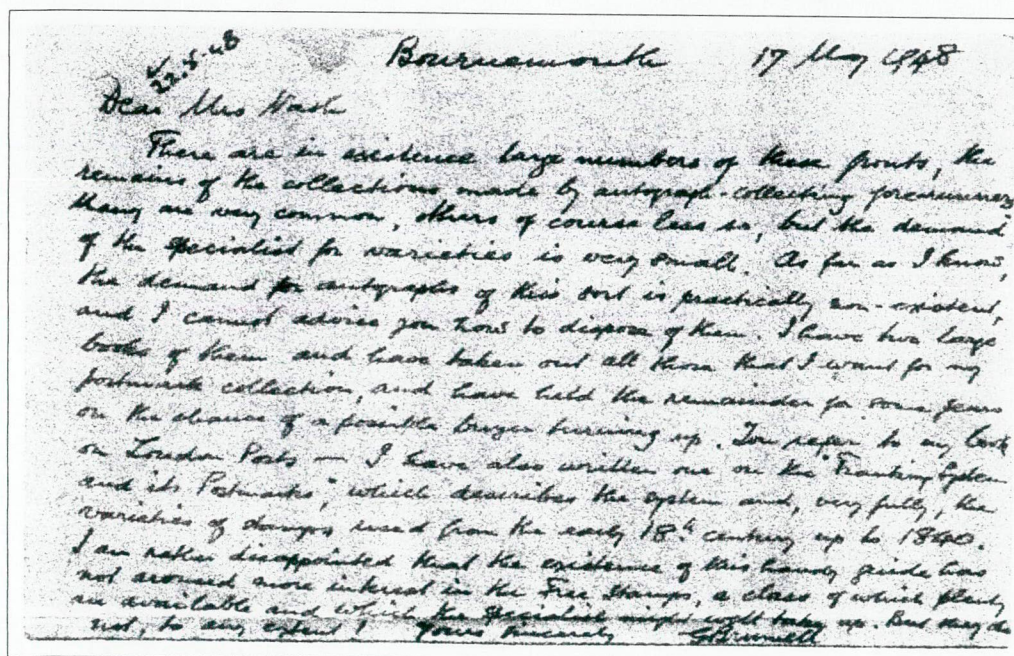 ✓ 22.5.48
Bournemouth 17 May 1948
Dear Mrs Nash
There are in existence large numbers of these fronts, the
remains of the collections made by autograph-collecting forerunners
Many are very common, others of course less so, but the demand
of the specialist for varieties is very small. As far as I know,
the demand for autographs of this sort is practically non-existent,
and I cannot advise you how to dispose of them. I have two large
books of them and have taken out all those that I want for my
postmark collection, and have held the remainder for some years
on the chance of a possible buyer turning up. You refer to my book
on London Posts — I have also written one on the "Franking System
and its Postmarks", which describes the system and, very fully, the
varieties of stamps used from the early 18th century up to 1840.
I am rather disappointed that the existence of this handy guide has
not aroused more interest in the Free Stamps, a class of which plenty
are available and which the specialist might well take up. But they do
not, to any extent! Yours sincerely GBrumell